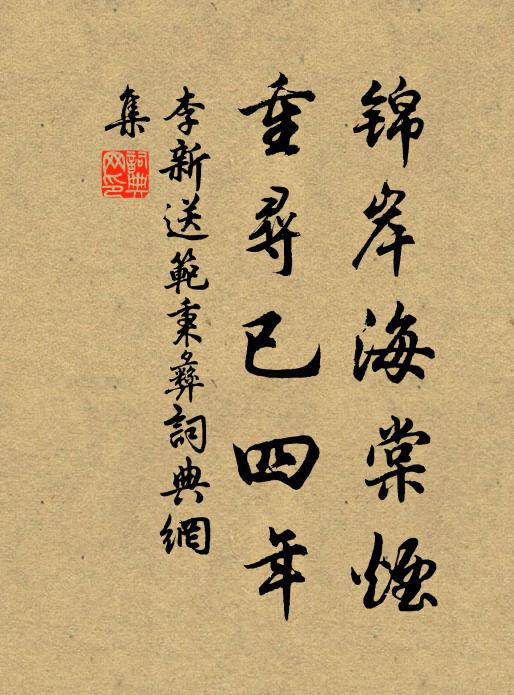 锦岸海棠煙
重尋已四年
李新送範秉彝詞典網
集
詞典网印